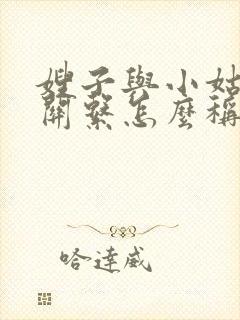 嫂子與小姑
關繫怎麼稱
哈達威